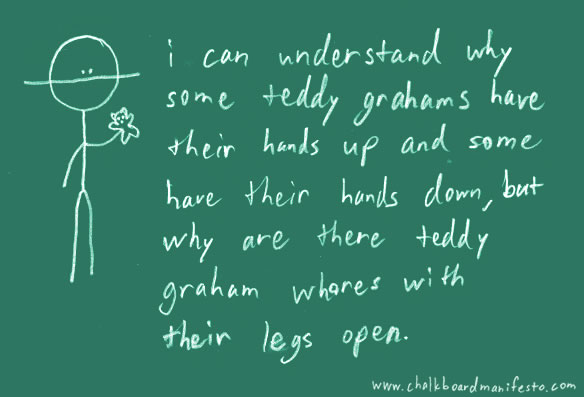 i can understand why
some teddy grahams have
their hands up and some
have their hands down, but
why are there teddy
graham whores with
their legs open.
www.chalkboardmanifesto.com